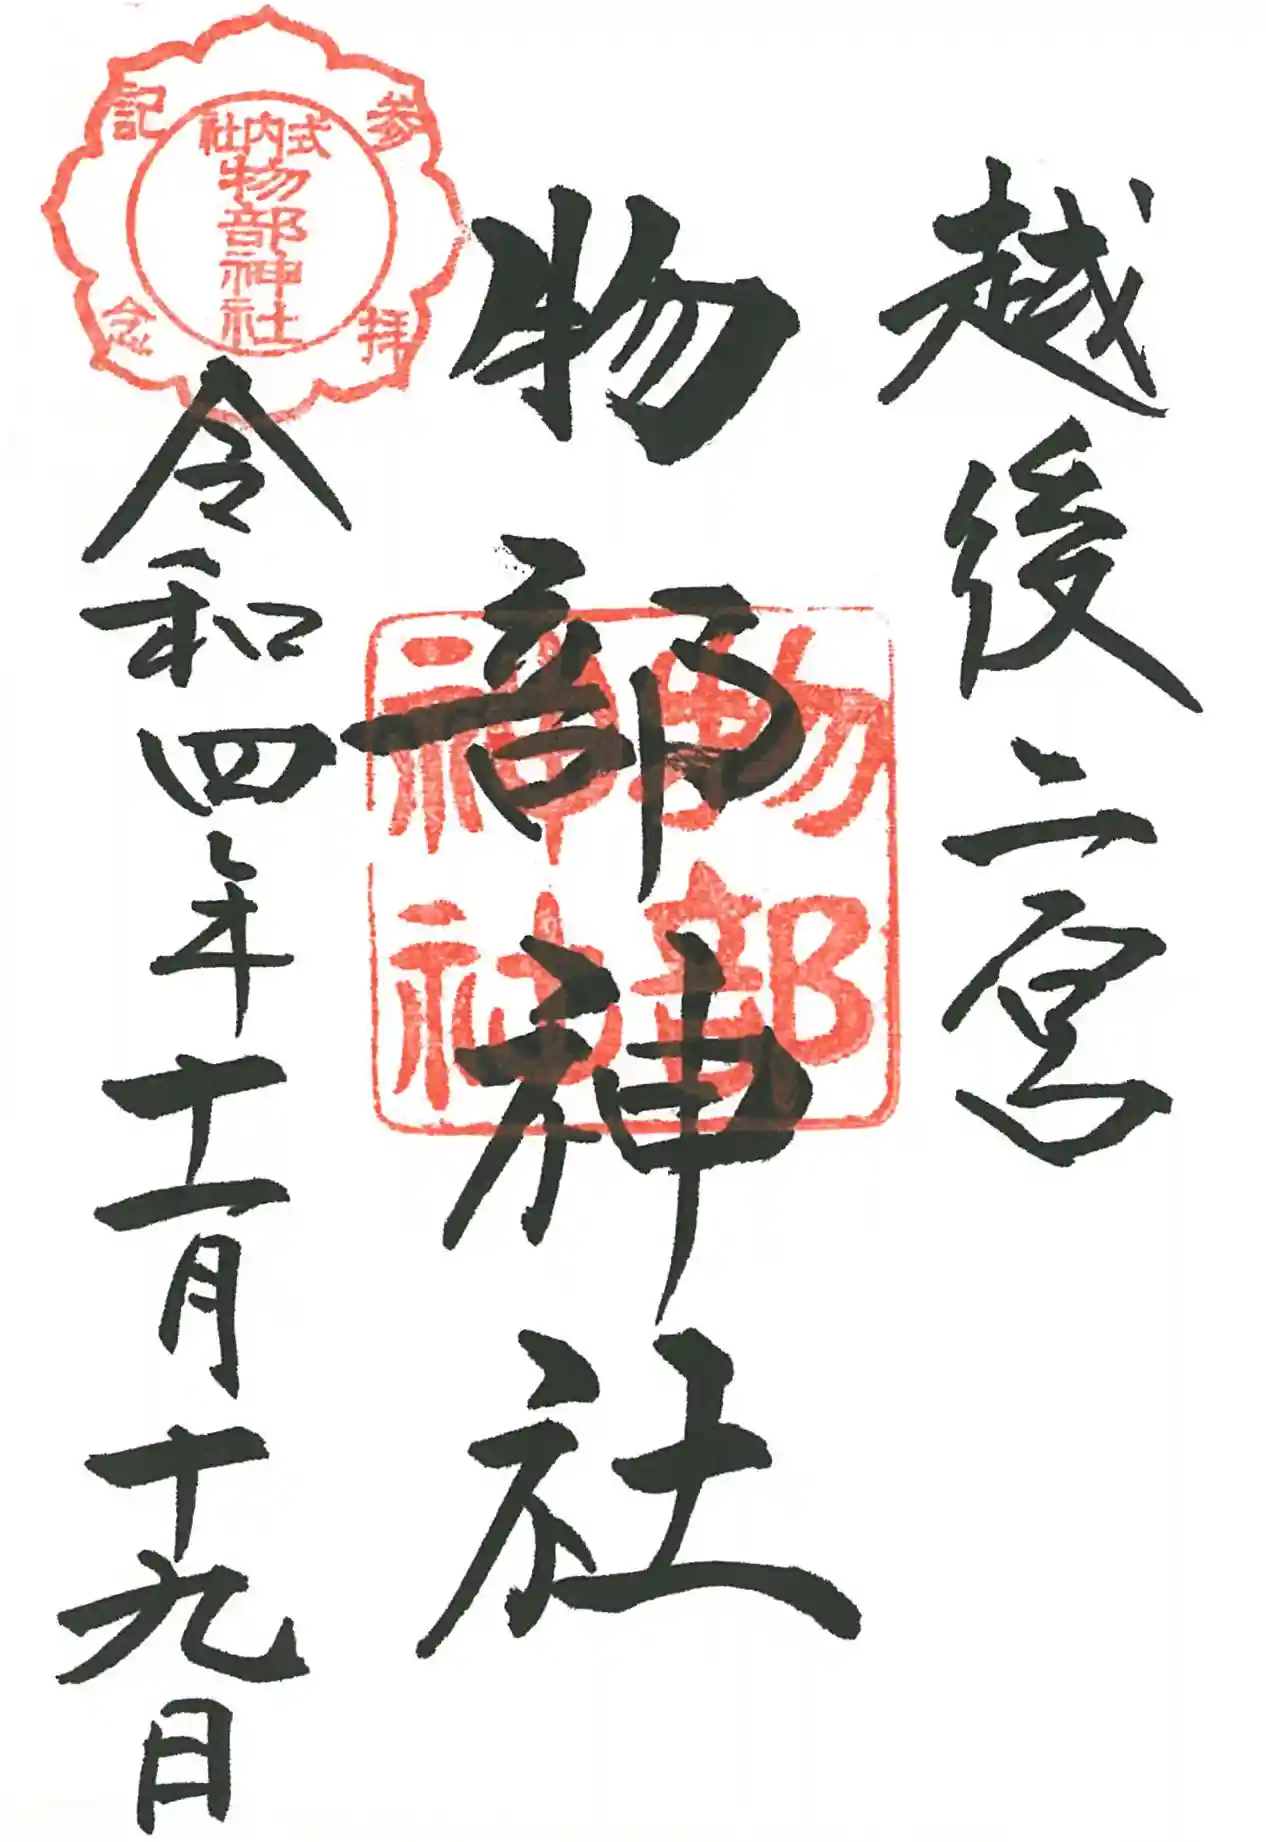 越後二宮
物部神社
令和四年十一月十九日
参拝記念
式内社
物部神社
物部
神社